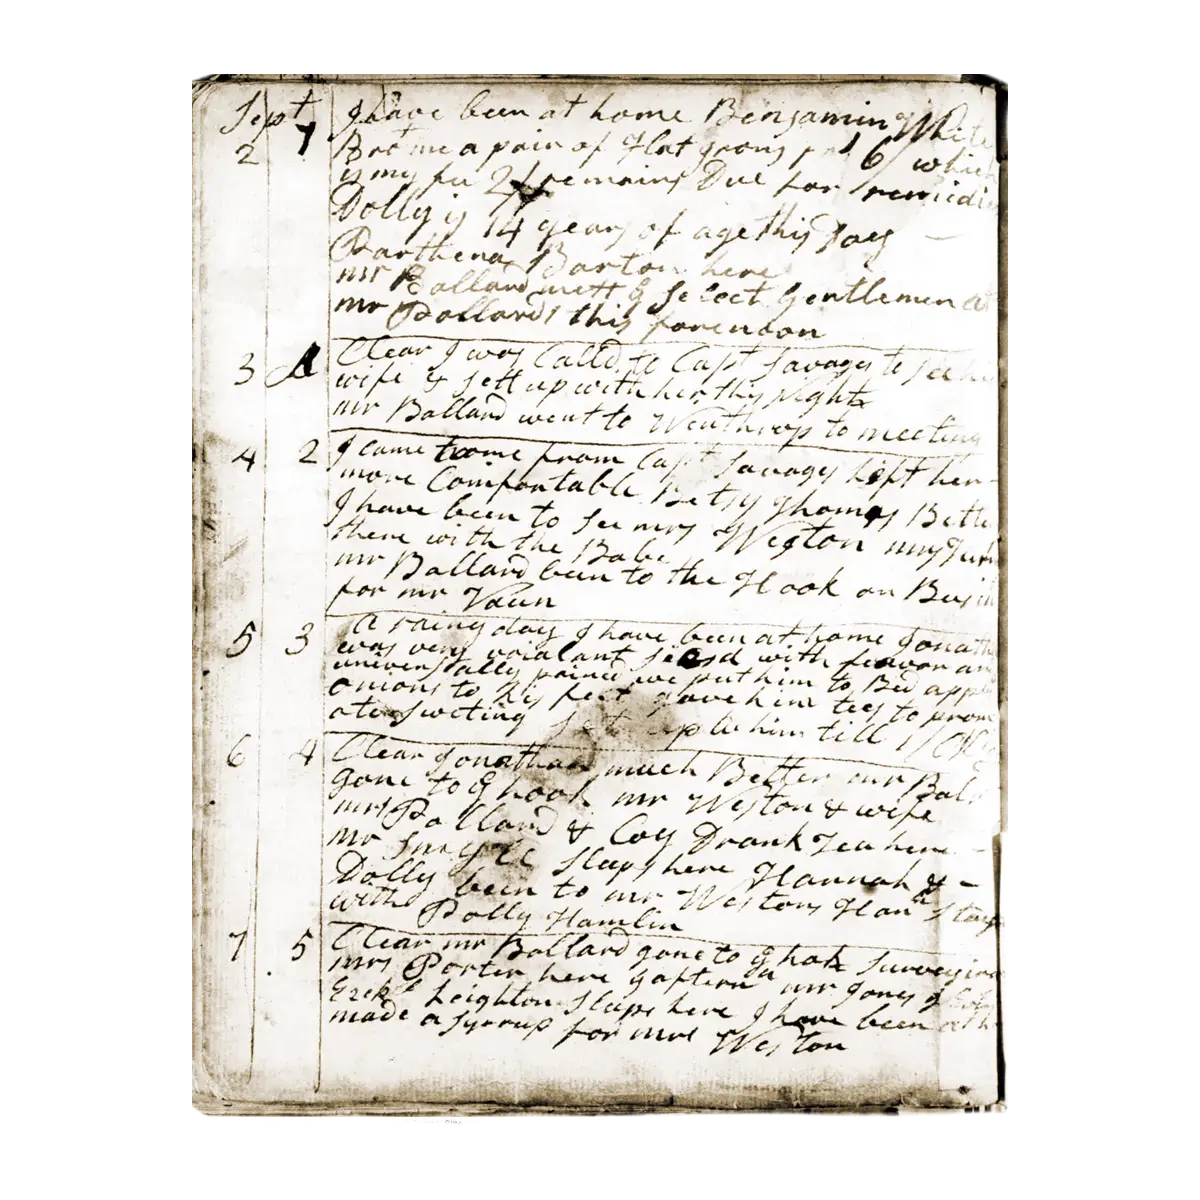 Sept I have been at home Benjamin White
2 7 Brot me a pair of flat Irons 6/ which
is my fee 2/ remains Due for remidies
Dolly is 14 years of age this Day
Parthena Barton here
mr Ballard mett ye Select Gentlemen at
mr Pollards this forenoon
3 A Clear I was Calld to Capt Savages to see his
wife & sett up with her this night
mr Ballard went to Winthrop to meeting
4 2 I came home from Capt Savages left her
more Comfortable Betsy Thomas Better
I have been to see mrs Weston my
there with the Babe
mr Ballard been to the Hook on Busin
for mr Vaun
5 3 A rainy day I have been at home Jonathn
was very voialant seisd with feavor and
universtally pained we put him to Bed apply
onions to his feet gave him teas to prom
ote sweting sett up with him till 1/ Clk
6 4 Clear Jonathan much Better mr Ball
gone to ye hook mr Weston & wife
mrs Pollard & Coy Drank Tea here
mr Smyth Sleeps here Hannah &
Dolly been to mr Westons Hanh stays
with Polly Hamlin
7 5 Clear mr Ballard gone to ye hook Surveying
mrs Porter here ys aftern mr Jones &
Ezekl Leighton Sleeps here I have been at h
made a syrrup for mrs Weston